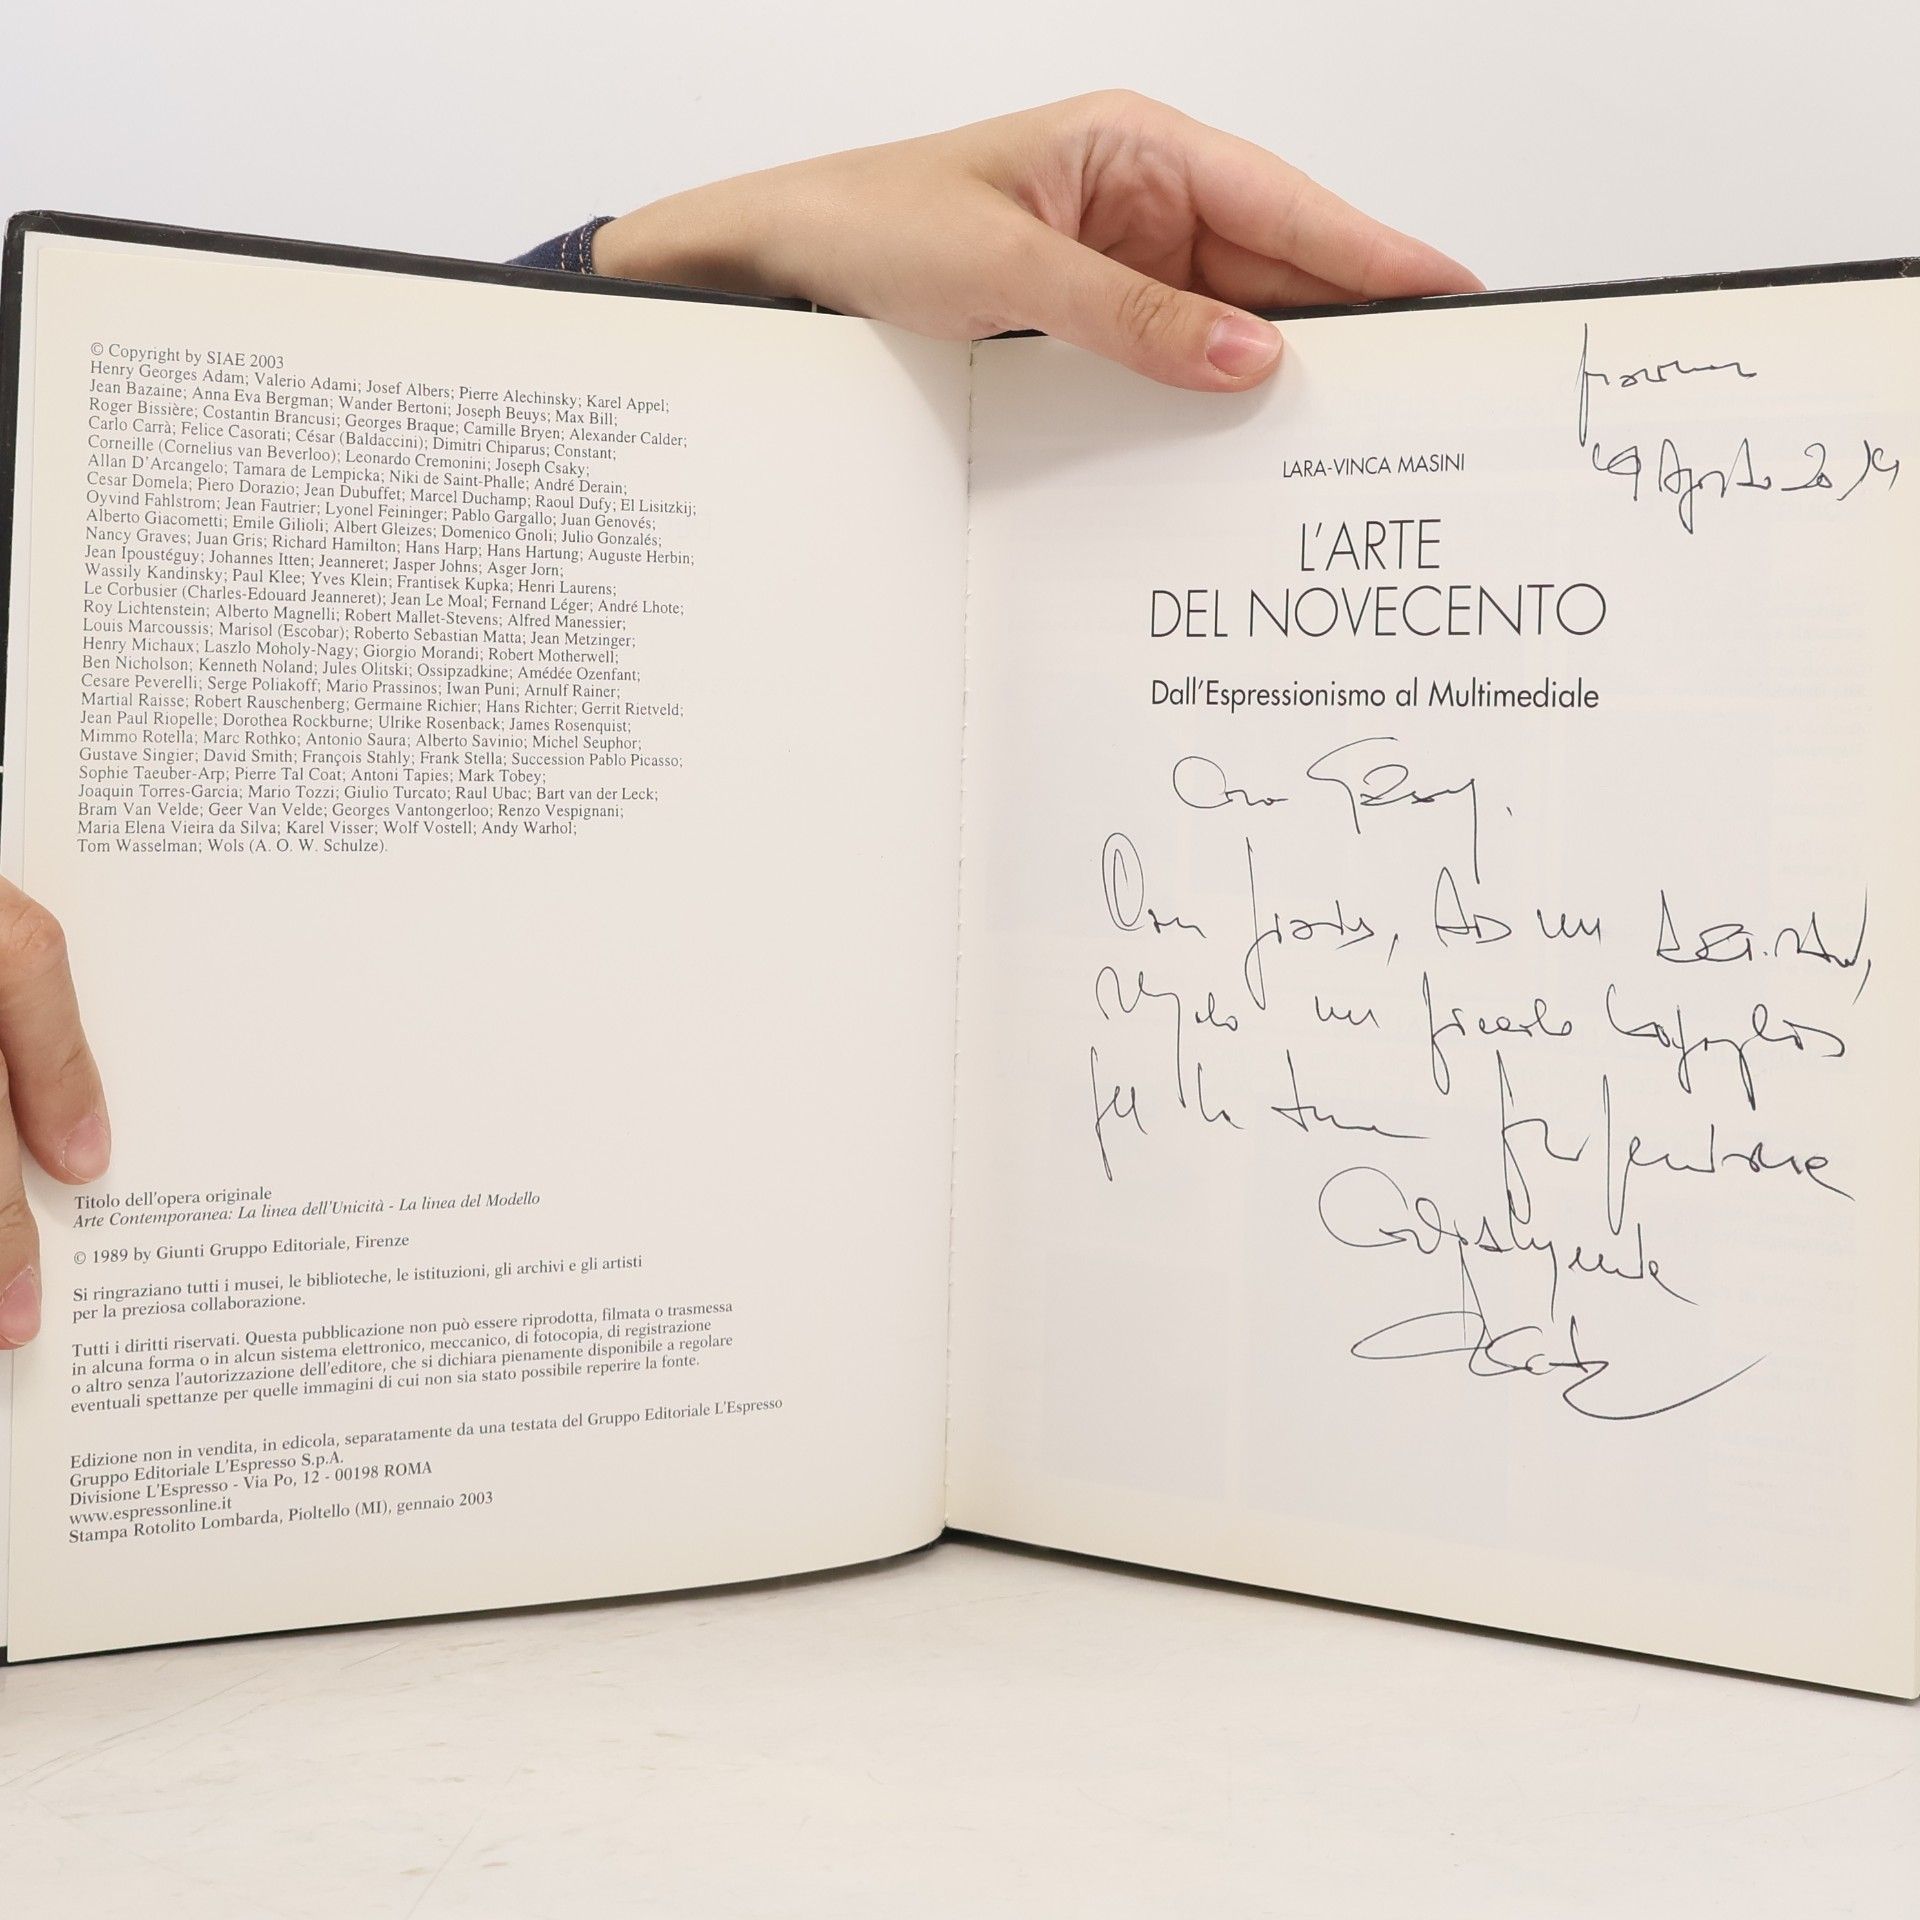 © Copyright by SIAE 2003
Henry Georges Adam; Valerio Adami; Josef Albers; Pierre Alechinsky; Karel Appel;
Jean Bazaine; Anna Eva Bergman; Wander Bertoni; Joseph Beuys; Max Bill;
Roger Bissière; Costantin Brancusi; Georges Braque; Camille Bryen; Alexander Calder;
Carlo Carrà; Felice Casorati; César (Baldaccini); Dimitri Chiparus; Constant;
Corneille (Cornelius van Beverloo); Leonardo Cremonini; Joseph Csaky;
Allan D'Arcangelo; Tamara de Lempicka; Niki de Saint-Phalle; André Derain;
Cesar Domela; Piero Dorazio; Jean Dubuffet; Marcel Duchamp; Raoul Dufy; El Lisitzkij;
Oyvind Fahlstrom; Jean Fautrier; Lyonel Feininger; Pablo Gargallo; Juan Genovés;
Alberto Giacometti; Emile Gilioli; Albert Gleizes; Domenico Gnoli; Julio Gonzalés;
Nancy Graves; Juan Gris; Richard Hamilton; Hans Harp; Hans Hartung; Auguste Herbin;
Jean Ipoustéguy; Johannes Itten; Jeanneret; Jasper Johns; Asger Jorn;
Wassily Kandinsky; Paul Klee; Yves Klein; Frantisek Kupka; Henri Laurens;
Le Corbusier (Charles-Edouard Jeanneret); Jean Le Moal; Fernand Léger; André Lhote;
Roy Lichtenstein; Alberto Magnelli; Robert Mallet-Stevens; Alfred Manessier;
Louis Marcoussis; Marisol (Escobar); Roberto Sebastian Matta; Jean Metzinger;
Henry Michaux; Laszlo Moholy-Nagy; Giorgio Morandi; Robert Motherwell;
Ben Nicholson; Kenneth Noland; Jules Olitski; Ossipzadkine; Amédée Ozenfant;
Cesare Peverelli; Serge Poliakoff; Mario Prassinos; Iwan Puni; Arnulf Rainer;
Martial Raisse; Robert Rauschenberg; Germaine Richier; Hans Richter; Gerrit Rietveld;
Jean Paul Riopelle; Dorothea Rockburne; Ulrike Rosenback; James Rosenquist;
Mimmo Rotella; Marc Rothko; Antonio Saura; Alberto Savinio; Michel Seuphor;
Gustave Singier; David Smith; François Stahly; Frank Stella; Succession Pablo Picasso;
Sophie Taeuber-Arp; Pierre Tal Coat; Antoni Tapies; Mark Tobey;
Joaquin Torres-Garcia; Mario Tozzi; Giulio Turcato; Raul Ubac; Bart van der Leck;
Bram Van Velde; Geer Van Velde; Georges Vantongerloo; Renzo Vespignani;
Maria Elena Vieira da Silva; Karel Visser; Wolf Vostell; Andy Warhol;
Tom Wasselman; Wols (A. O. W. Schulze).
Titolo dell'opera originale
Arte Contemporanea: La linea dell'Unicità - La linea del Modello
© 1989 by Giunti Gruppo Editoriale, Firenze
Si ringraziano tutti i musei, le biblioteche, le istituzioni, gli archivi e gli artisti
per la preziosa collaborazione.
Tutti i diritti riservati. Questa pubblicazione non può essere riprodotta, filmata o trasmessa
in alcuna forma o in alcun sistema elettronico, meccanico, di fotocopia, di registrazione
o altro senza l'autorizzazione dell'editore, che si dichiara pienamente disponibile a regolare
eventuali spettanze per quelle immagini di cui non sia stato possibile reperire la fonte.
Edizione non in vendita, in edicola, separatamente da una testata del Gruppo Editoriale L'Espresso
Gruppo Editoriale L'Espresso S.p.A.
Divisione L'Espresso - Via Po, 12 - 00198 ROMA
www.espressonline.it
Stampa Rotolito Lombarda, Pioltello (MI), gennaio 2003
Agosto 2014
LARA-VINCA MASINI
L'ARTE
DEL NOVECENTO
Dall'Espressionismo al Multimediale
Con AD un
un piccolo
per la tua